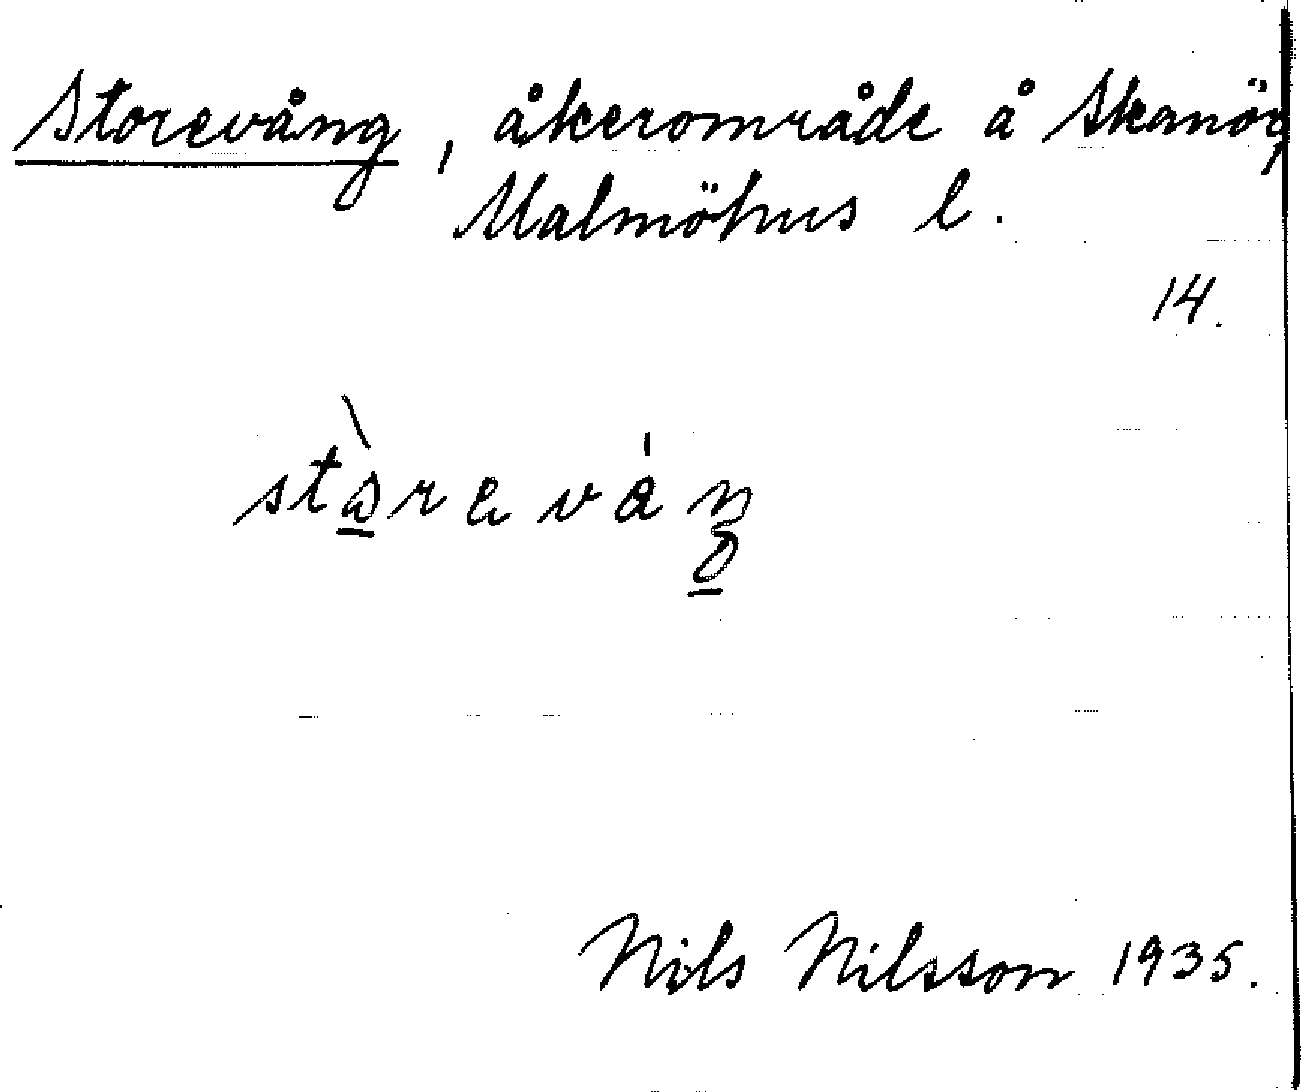 Storevång, åkerområde å Skanör,
Malmöhus l.
14.
Nils Nilsson 1935.